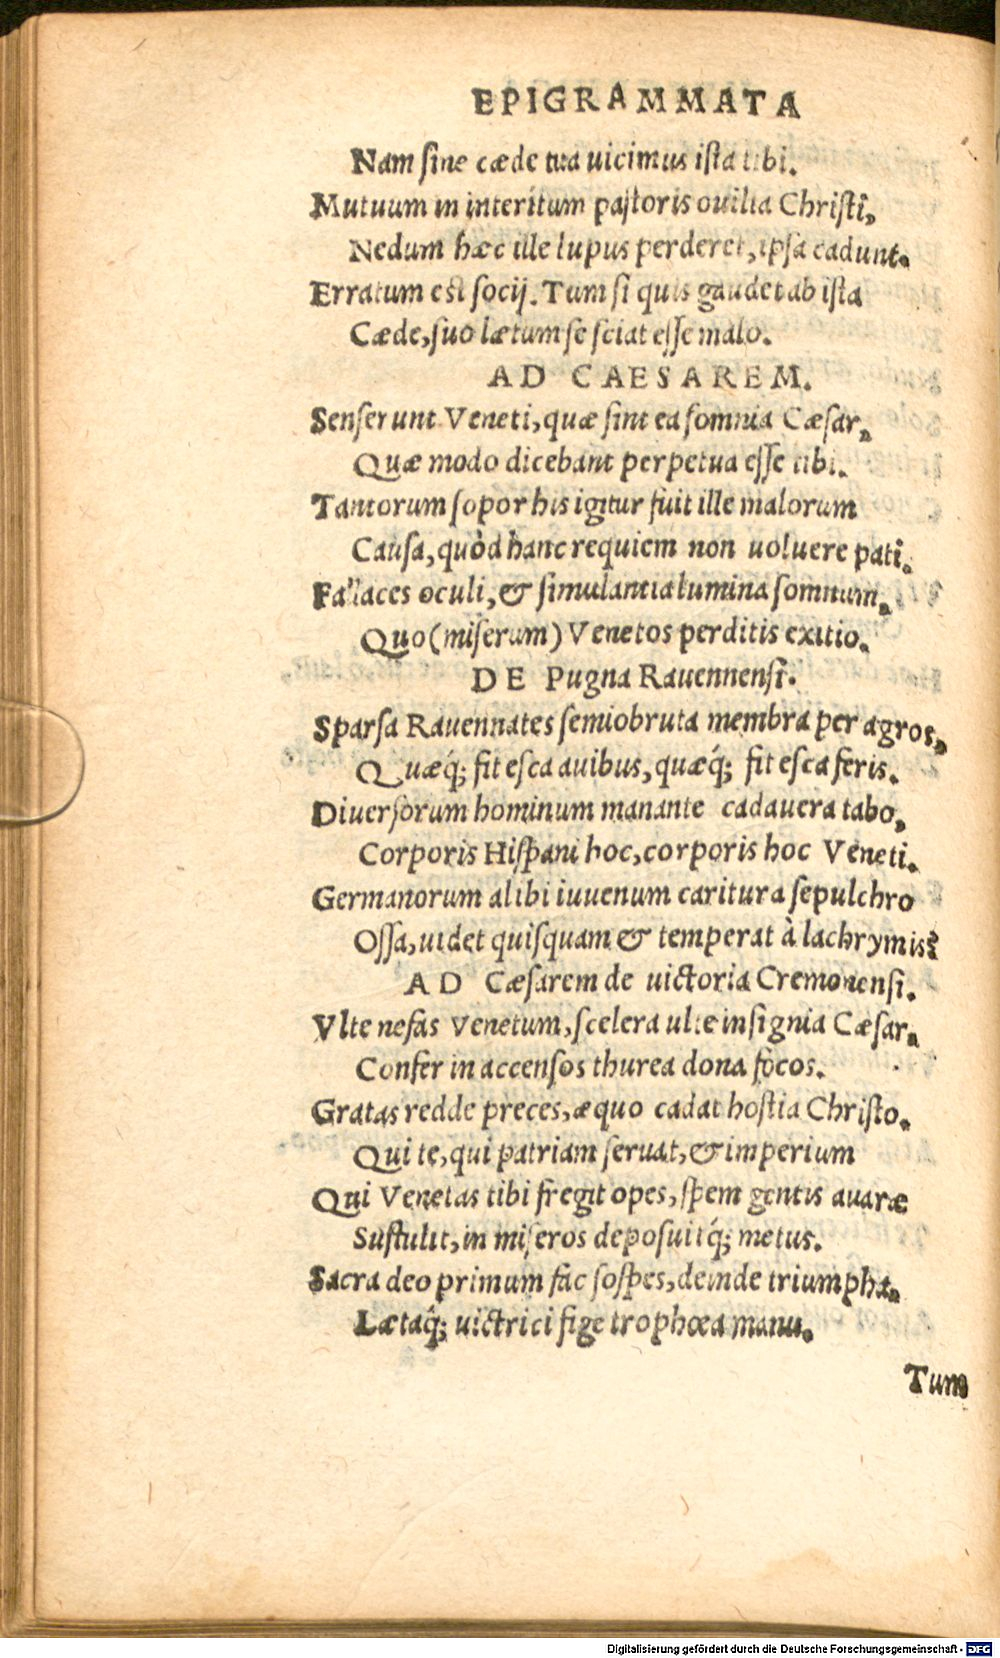 EPIGRAMMATA
Nam sine cæde tua uicimus ista tibi.
Mutuum in interitum pastoris ouilia Christi,
Nedum hæc ille lupus perderet, ipsa cadunt.
Erratum est socij. Tum si quis gaudet ab ista
Cæde, suo lætum se sciat esse malo.
AD CAESAREM.
Senserunt Veneti, quæ sint ea somnia Cæsar,
Quæ modo dicebant perpetua esse tibi.
Tantorum sopor his igitur fuit ille malorum
Causa, quòd hanc requiem non uoluere pati.
Fallaces oculi, & simulantia lumina somnum,
Quo (miserum) Venetos perditis exitio.
DE Pugna Rauennensi.
Sparsa Rauennates semiobruta membra per agros,
Quæq́; fit esca auibus, quæq́; fit esca feris.
Diuersorum hominum manante cadauera tabo,
Corporis Hispani hoc, corporis hoc Veneti.
Germanorum alibi iuuenum caritura sepulchro
Ossa, uidet quisquam & temperat à lachrymis?
AD Cæsarem de uictoria Cremonensi.
Vlte nefas Venetum, scelera ulte insignia Cæsar,
Confer in accensos thurea dona focos.
Gratas redde preces, æquo cadat hostia Christo.
Qui te, qui patriam seruat, & imperium
Qui Venetas tibi fregit opes, spem gentis auaræ
Sustulit, in miseros deposuitq́; metus.
Sacra deo primum fac sospes, deinde triumpha,
Lætaq́; uictrici fige trophœa manu.
Tum
Digitalisierung gefördert durch die Deutsche Forschungsgemeinschaft - DFG